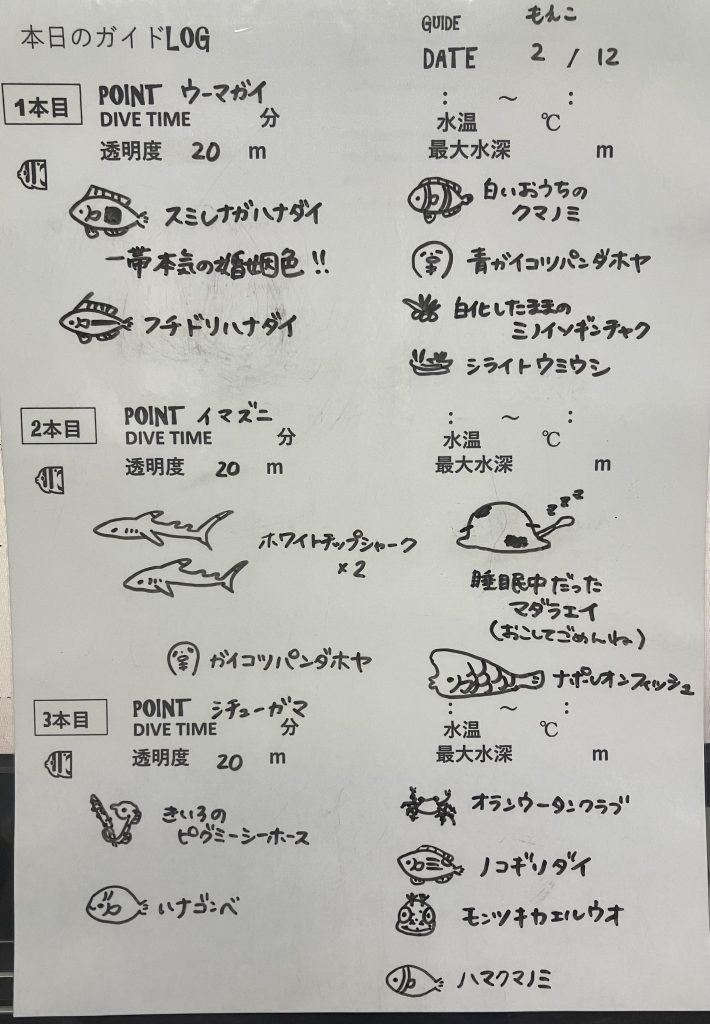 本日のガイドLOG
GUIDE もんこ
DATE 2 / 12
1本目
POINT ウーマガイ
DIVE TIME 分
透明度 20 m
: ～ :
水温 ℃
最大水深 m
スミレナガハナダイ
一帯本気の婚姻色!!
フチドリハナダイ
白いおうちの
クマノミ
青ガイコツパンダホヤ
白化したままの
ミノイソギンチャク
シライトウミウシ
2本目
POINT イマズニ
DIVE TIME 分
透明度 20 m
: ～ :
水温 ℃
最大水深 m
ホワイトチップシャーク
×2
ガイコツパンダホヤ
zzz
睡眠中だった
マダラエイ
(おこしてごめんね)
ナポレオンフィッシュ
3本目
POINT シチューガマ
DIVE TIME 分
透明度 20 m
: ～ :
水温 ℃
最大水深 m
きいろの
ピグミーシーホース
ハナゴンベ
オランウータンクラブ
ノコギリダイ
モンツキカエルウオ
ハマクマノミ